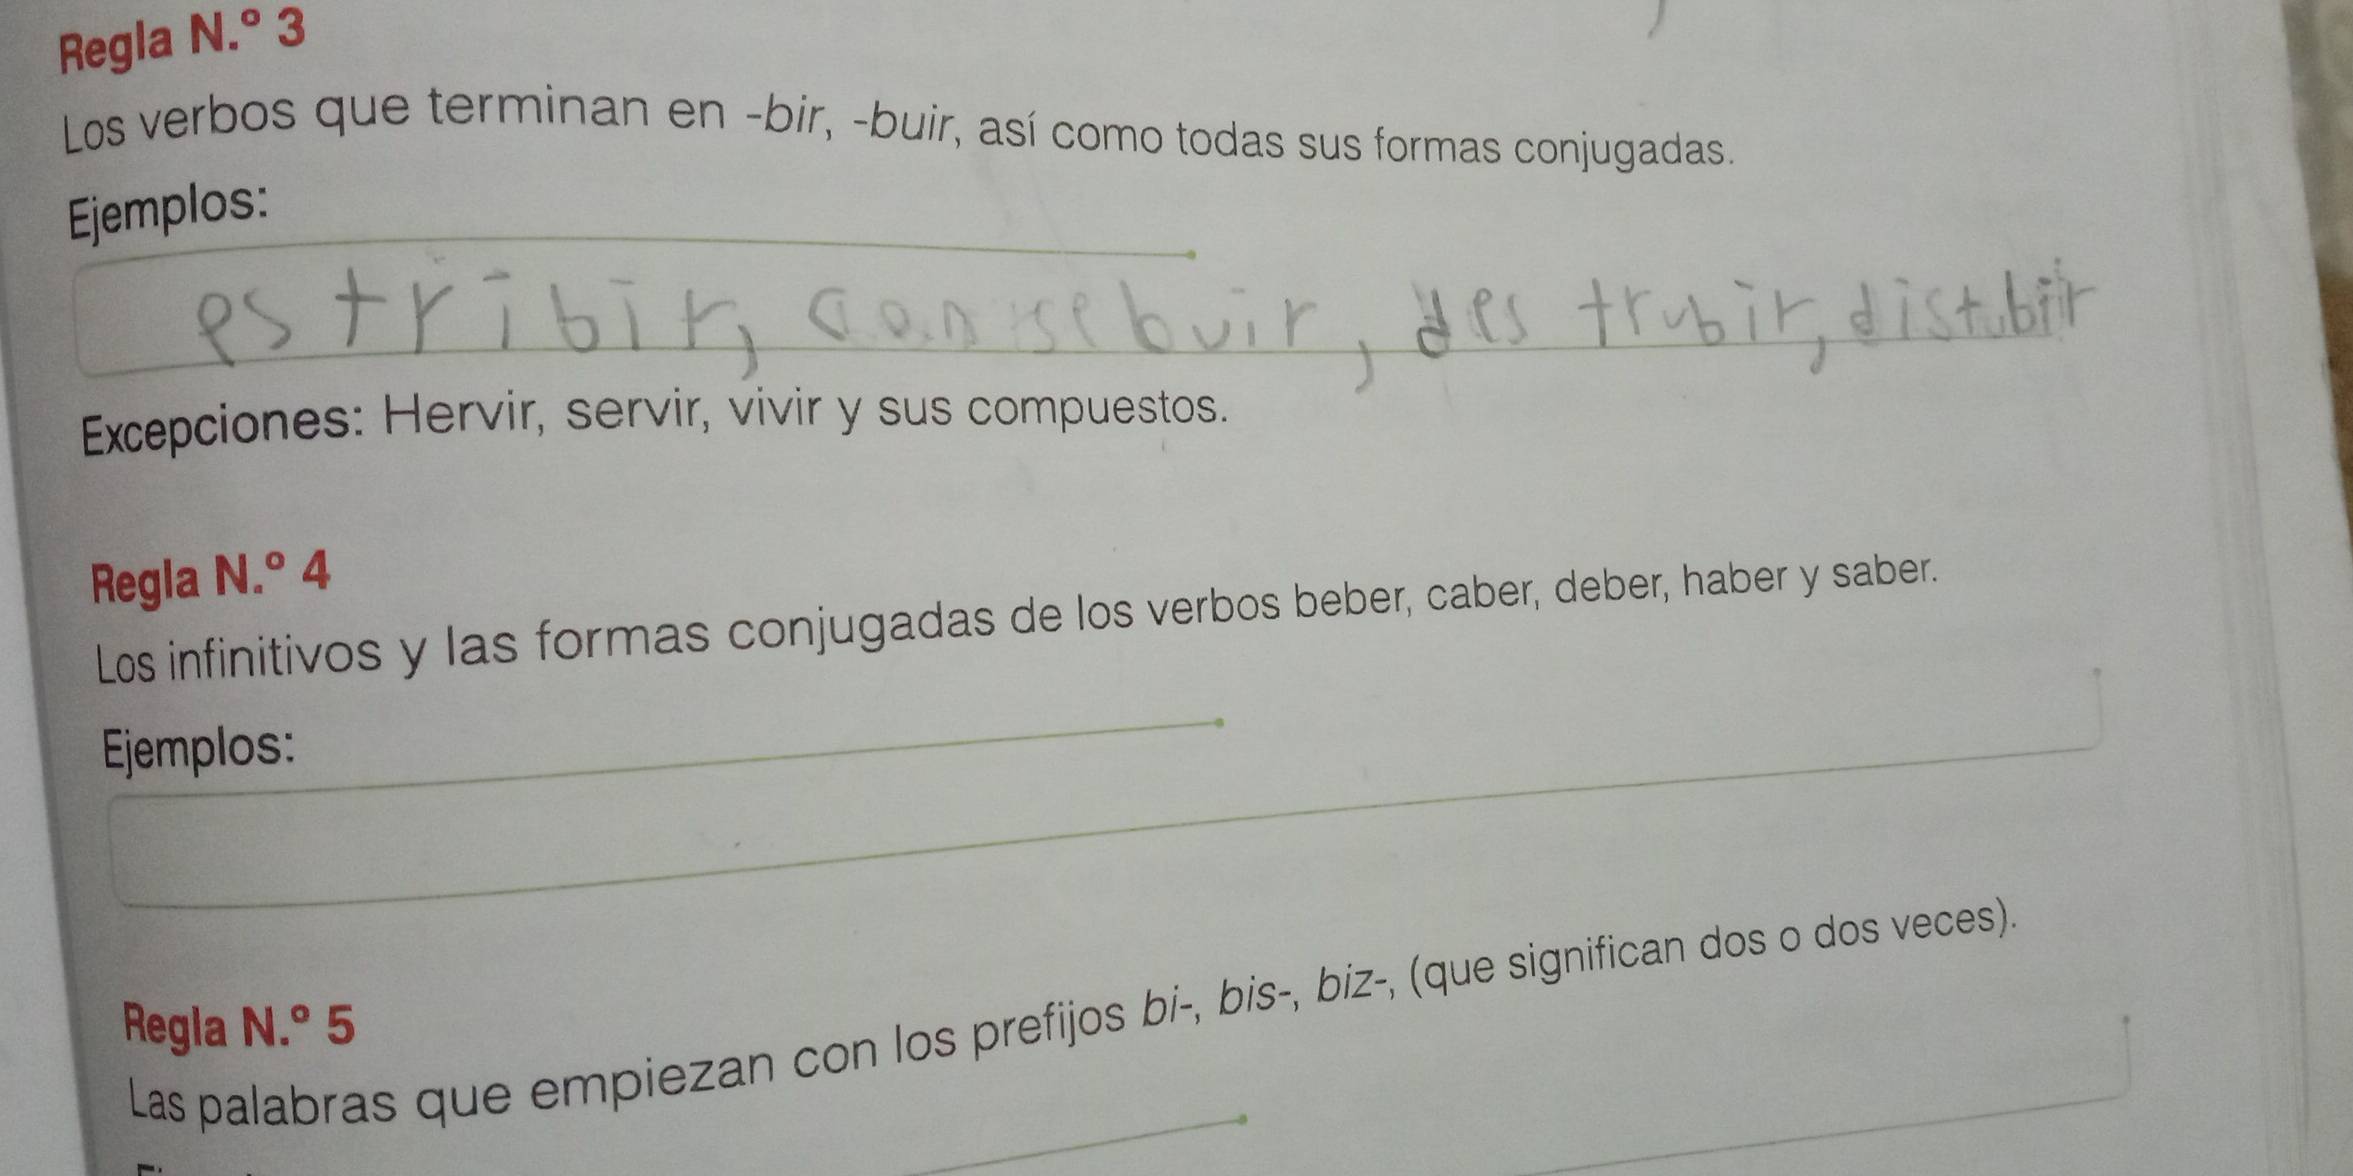 Regla N.º 3
Los verbos que terminan en -bir, -buir, así como todas sus formas conjugadas.
Ejemplos:
estribir, consebuir, destrubir, distubir
Excepciones: Hervir, servir, vivir y sus compuestos.
Regla N.º 4
Los infinitivos y las formas conjugadas de los verbos beber, caber, deber, haber y saber.
Ejemplos:
Regla N.º 5
Las palabras que empiezan con los prefijos bi-, bis-, biz-, (que significan dos o dos veces).